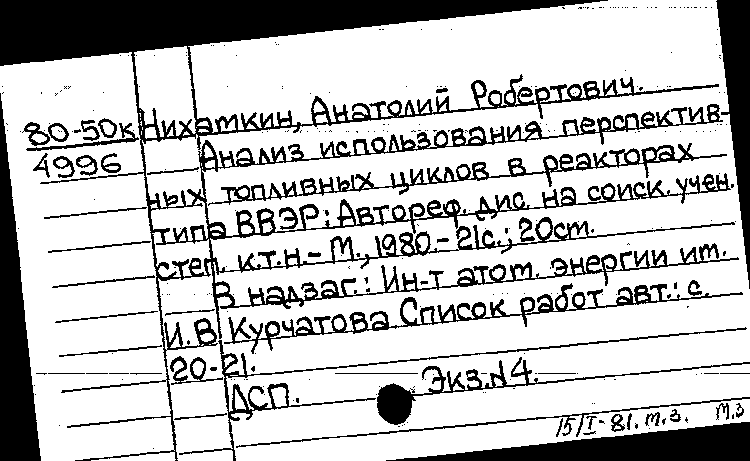 80-50к Нихаткин, Анатолий Робертович.
4996 Анализ использования перспектив-
ных топливных циклов в реакторах
типа ВВЭР: Автореф. дис. на соиск. учен.
степ. к.т.н. - М., 1980. - 21с.; 20ст.
В надзаг.: Ин-т атом. энергии им.
И.В. Курчатова Список работ авт.: с.
20-21.
ДСП. Экз.№4.
15/I-81. м.з. м.з